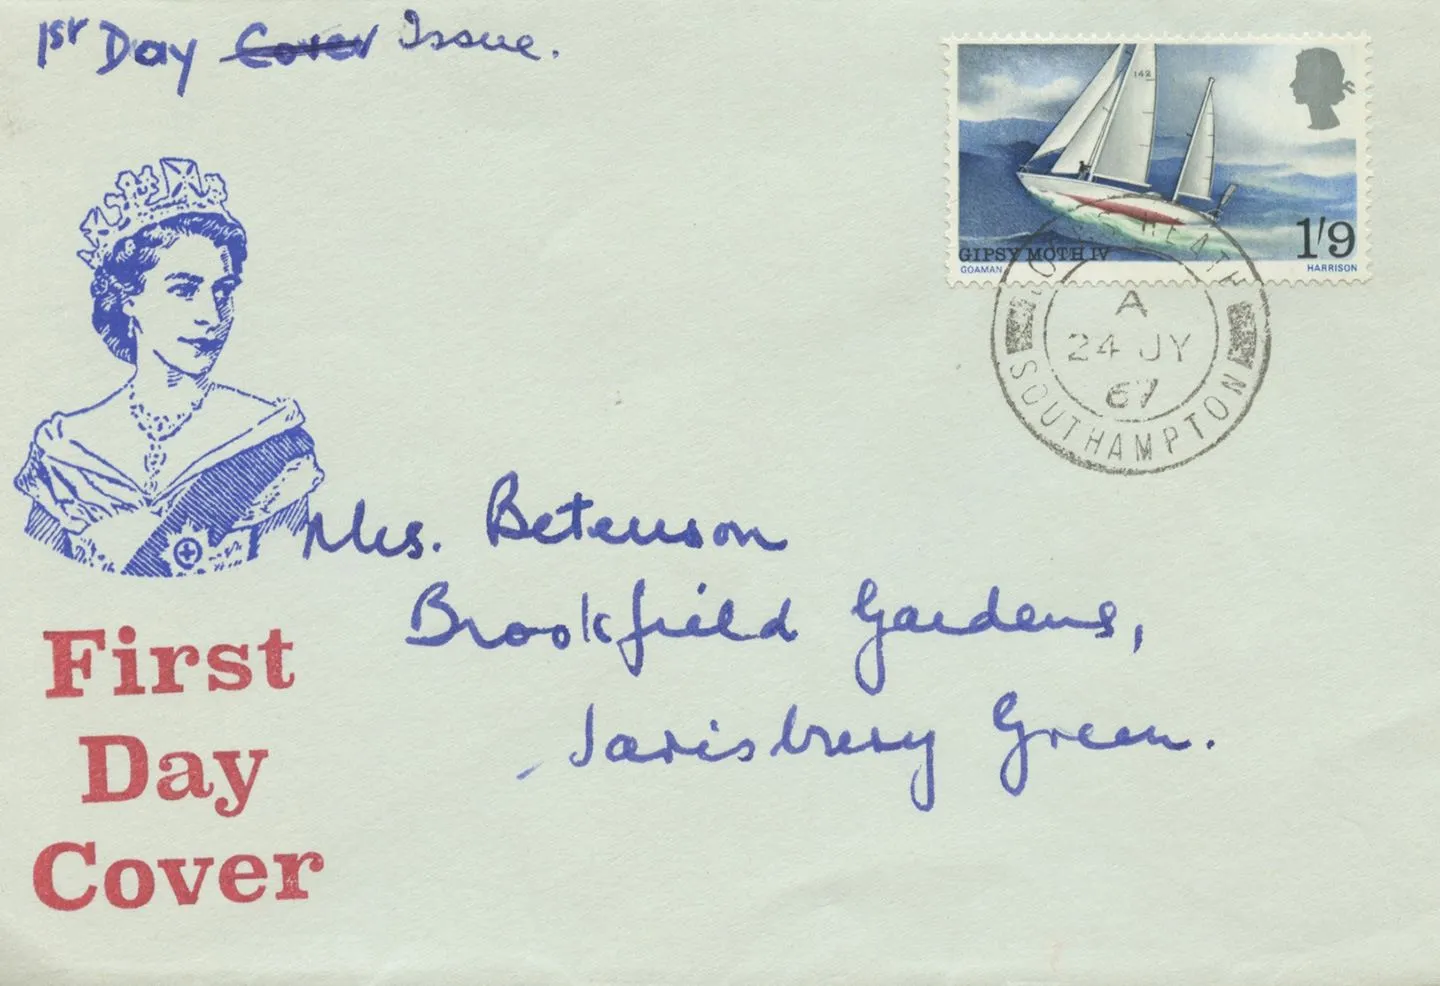 1st Day Cover Issue.
142
GIPSY MOTH IV
1/9
GOAMAN
HARRISON
HEATH
A
24 JY
67
SOUTHAMPTON
Mrs. Betenson
Brookfield Gardens,
Sarisbury Green.
First
Day
Cover